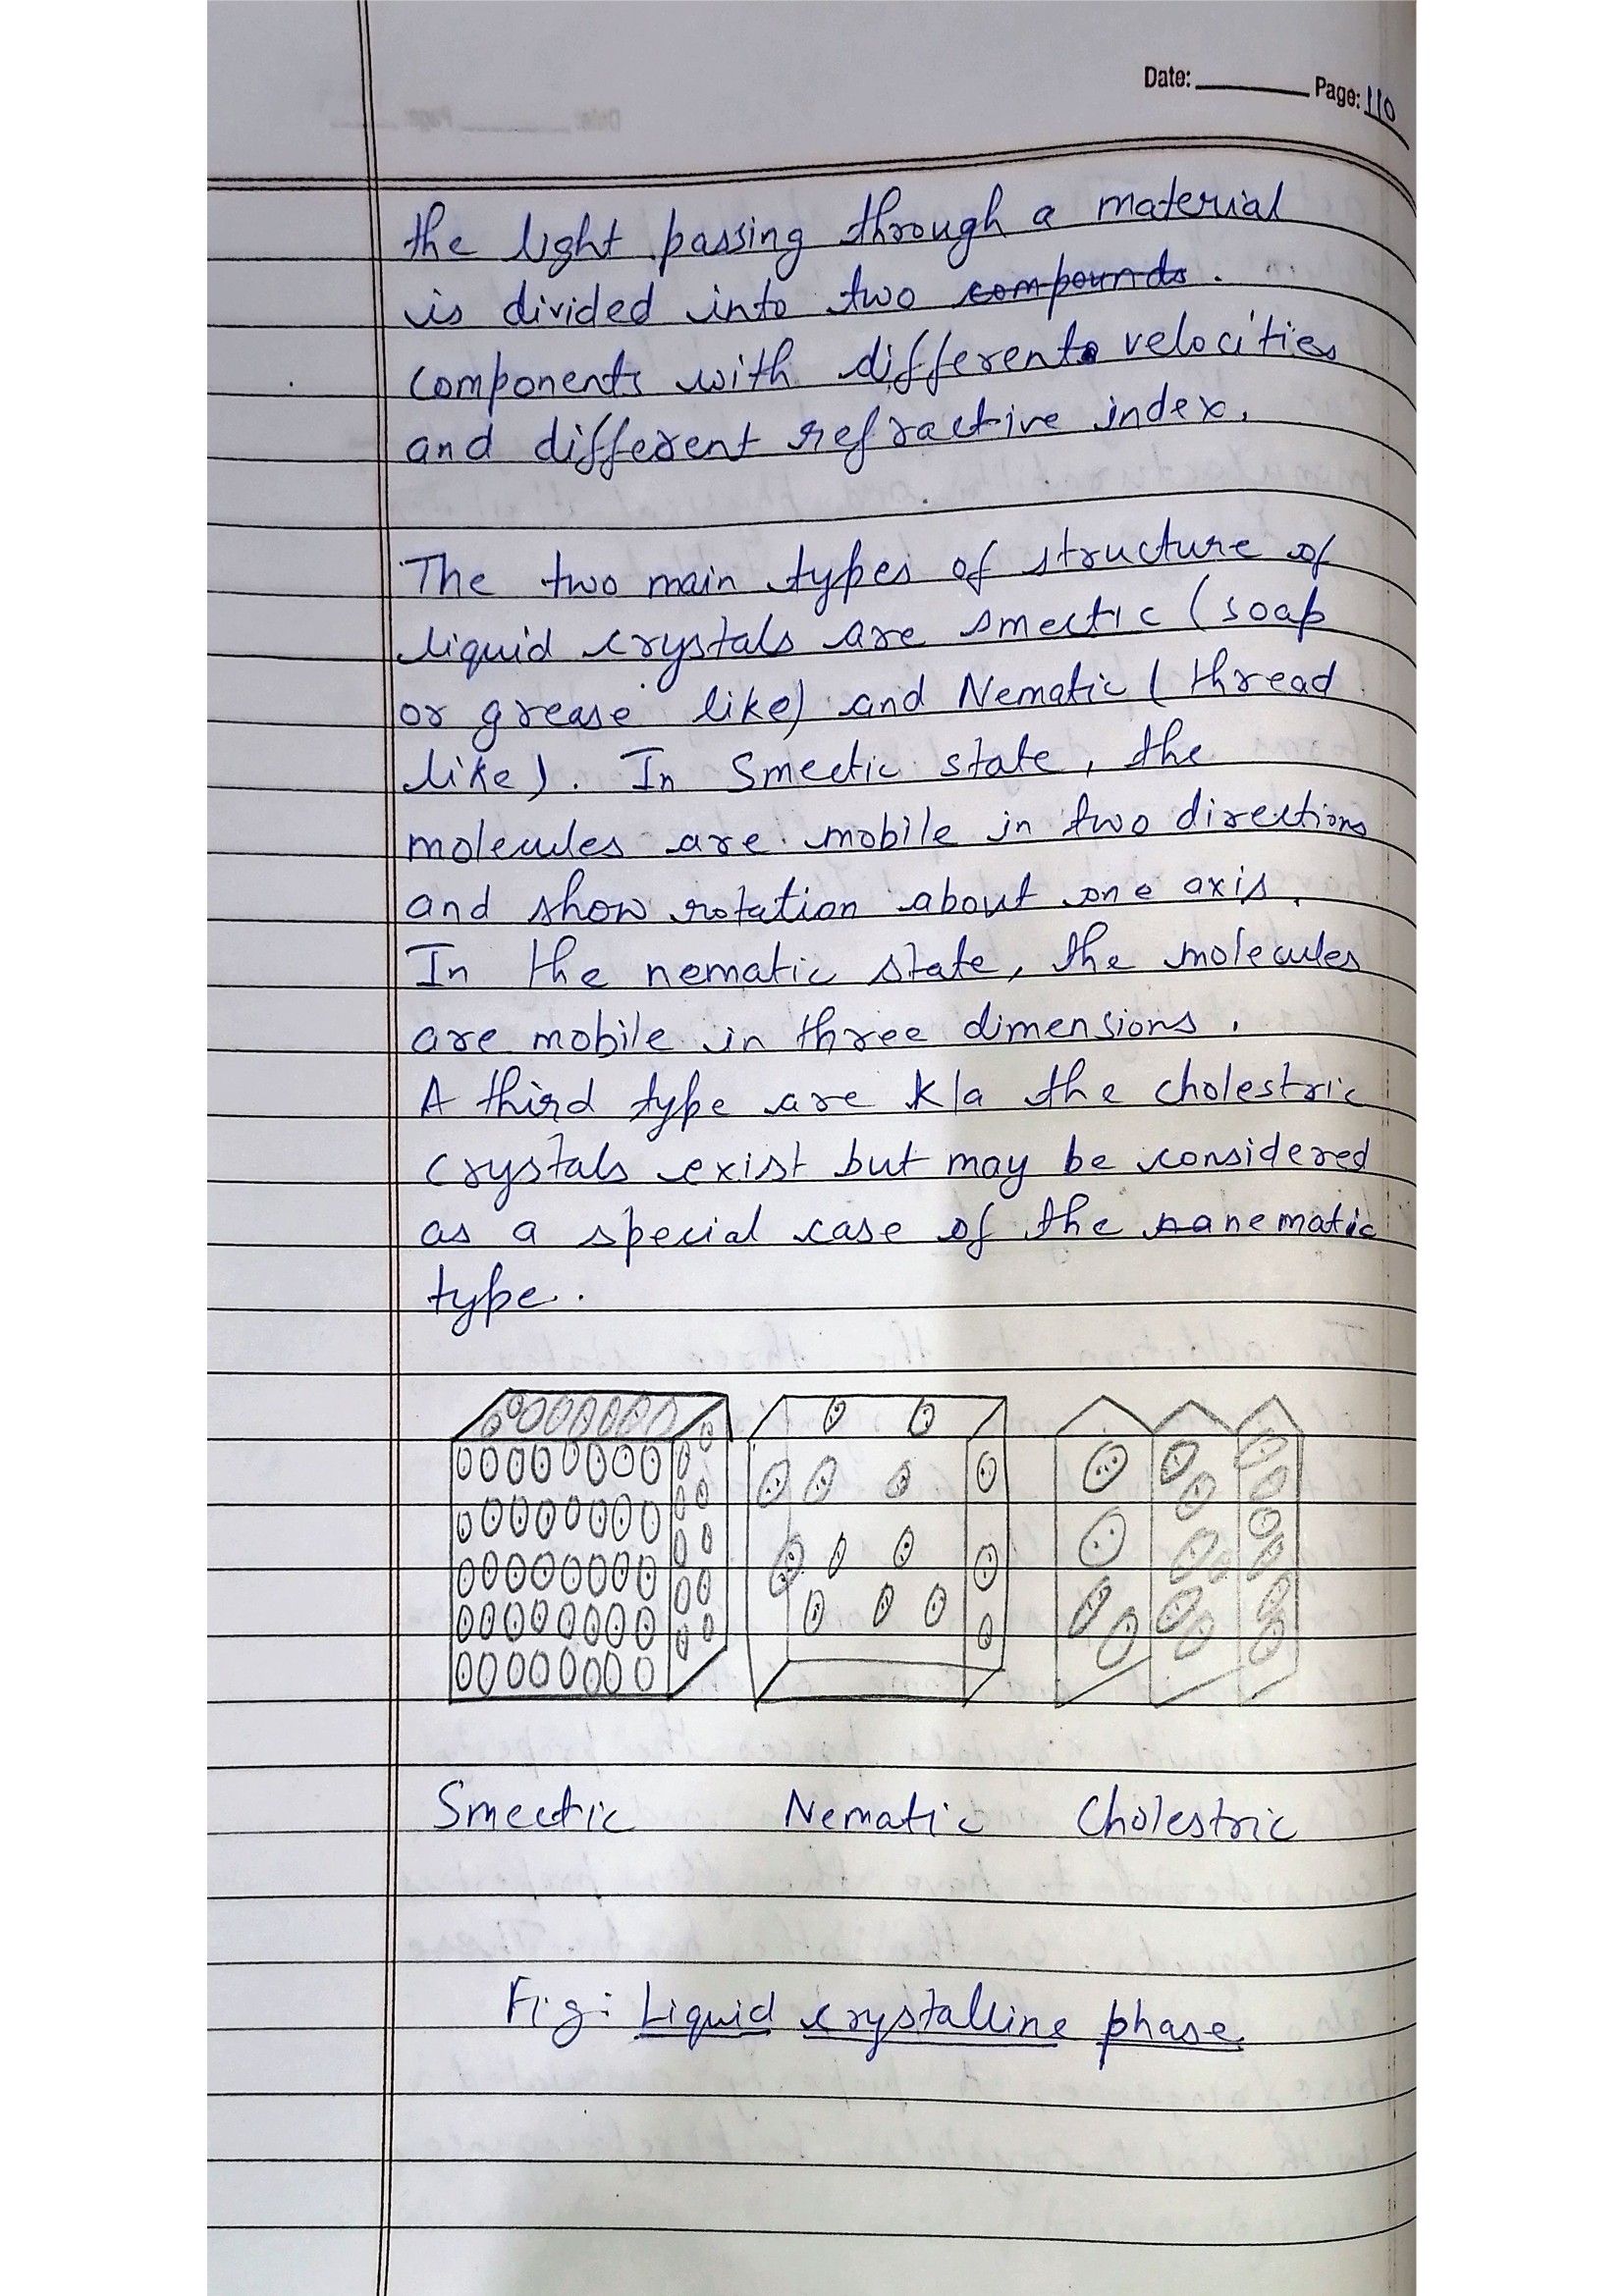 Date: Page: 110
the light passing through a material
is divided into two compounds.
components with different velocities
and different refractive index.
The two main types of structure of
liquid crystals are smectic (soap
or grease like) and Nematic (thread
like). In Smectic state, the
molecules are mobile in two directions
and show rotation about one axis.
In the nematic state, the molecules
are mobile in three dimensions.
A third type are k/a the cholestric
crystals exist but may be considered
as a special case of the nematic
type.
Smectic Nematic Cholestric
Fig: Liquid crystalline phase